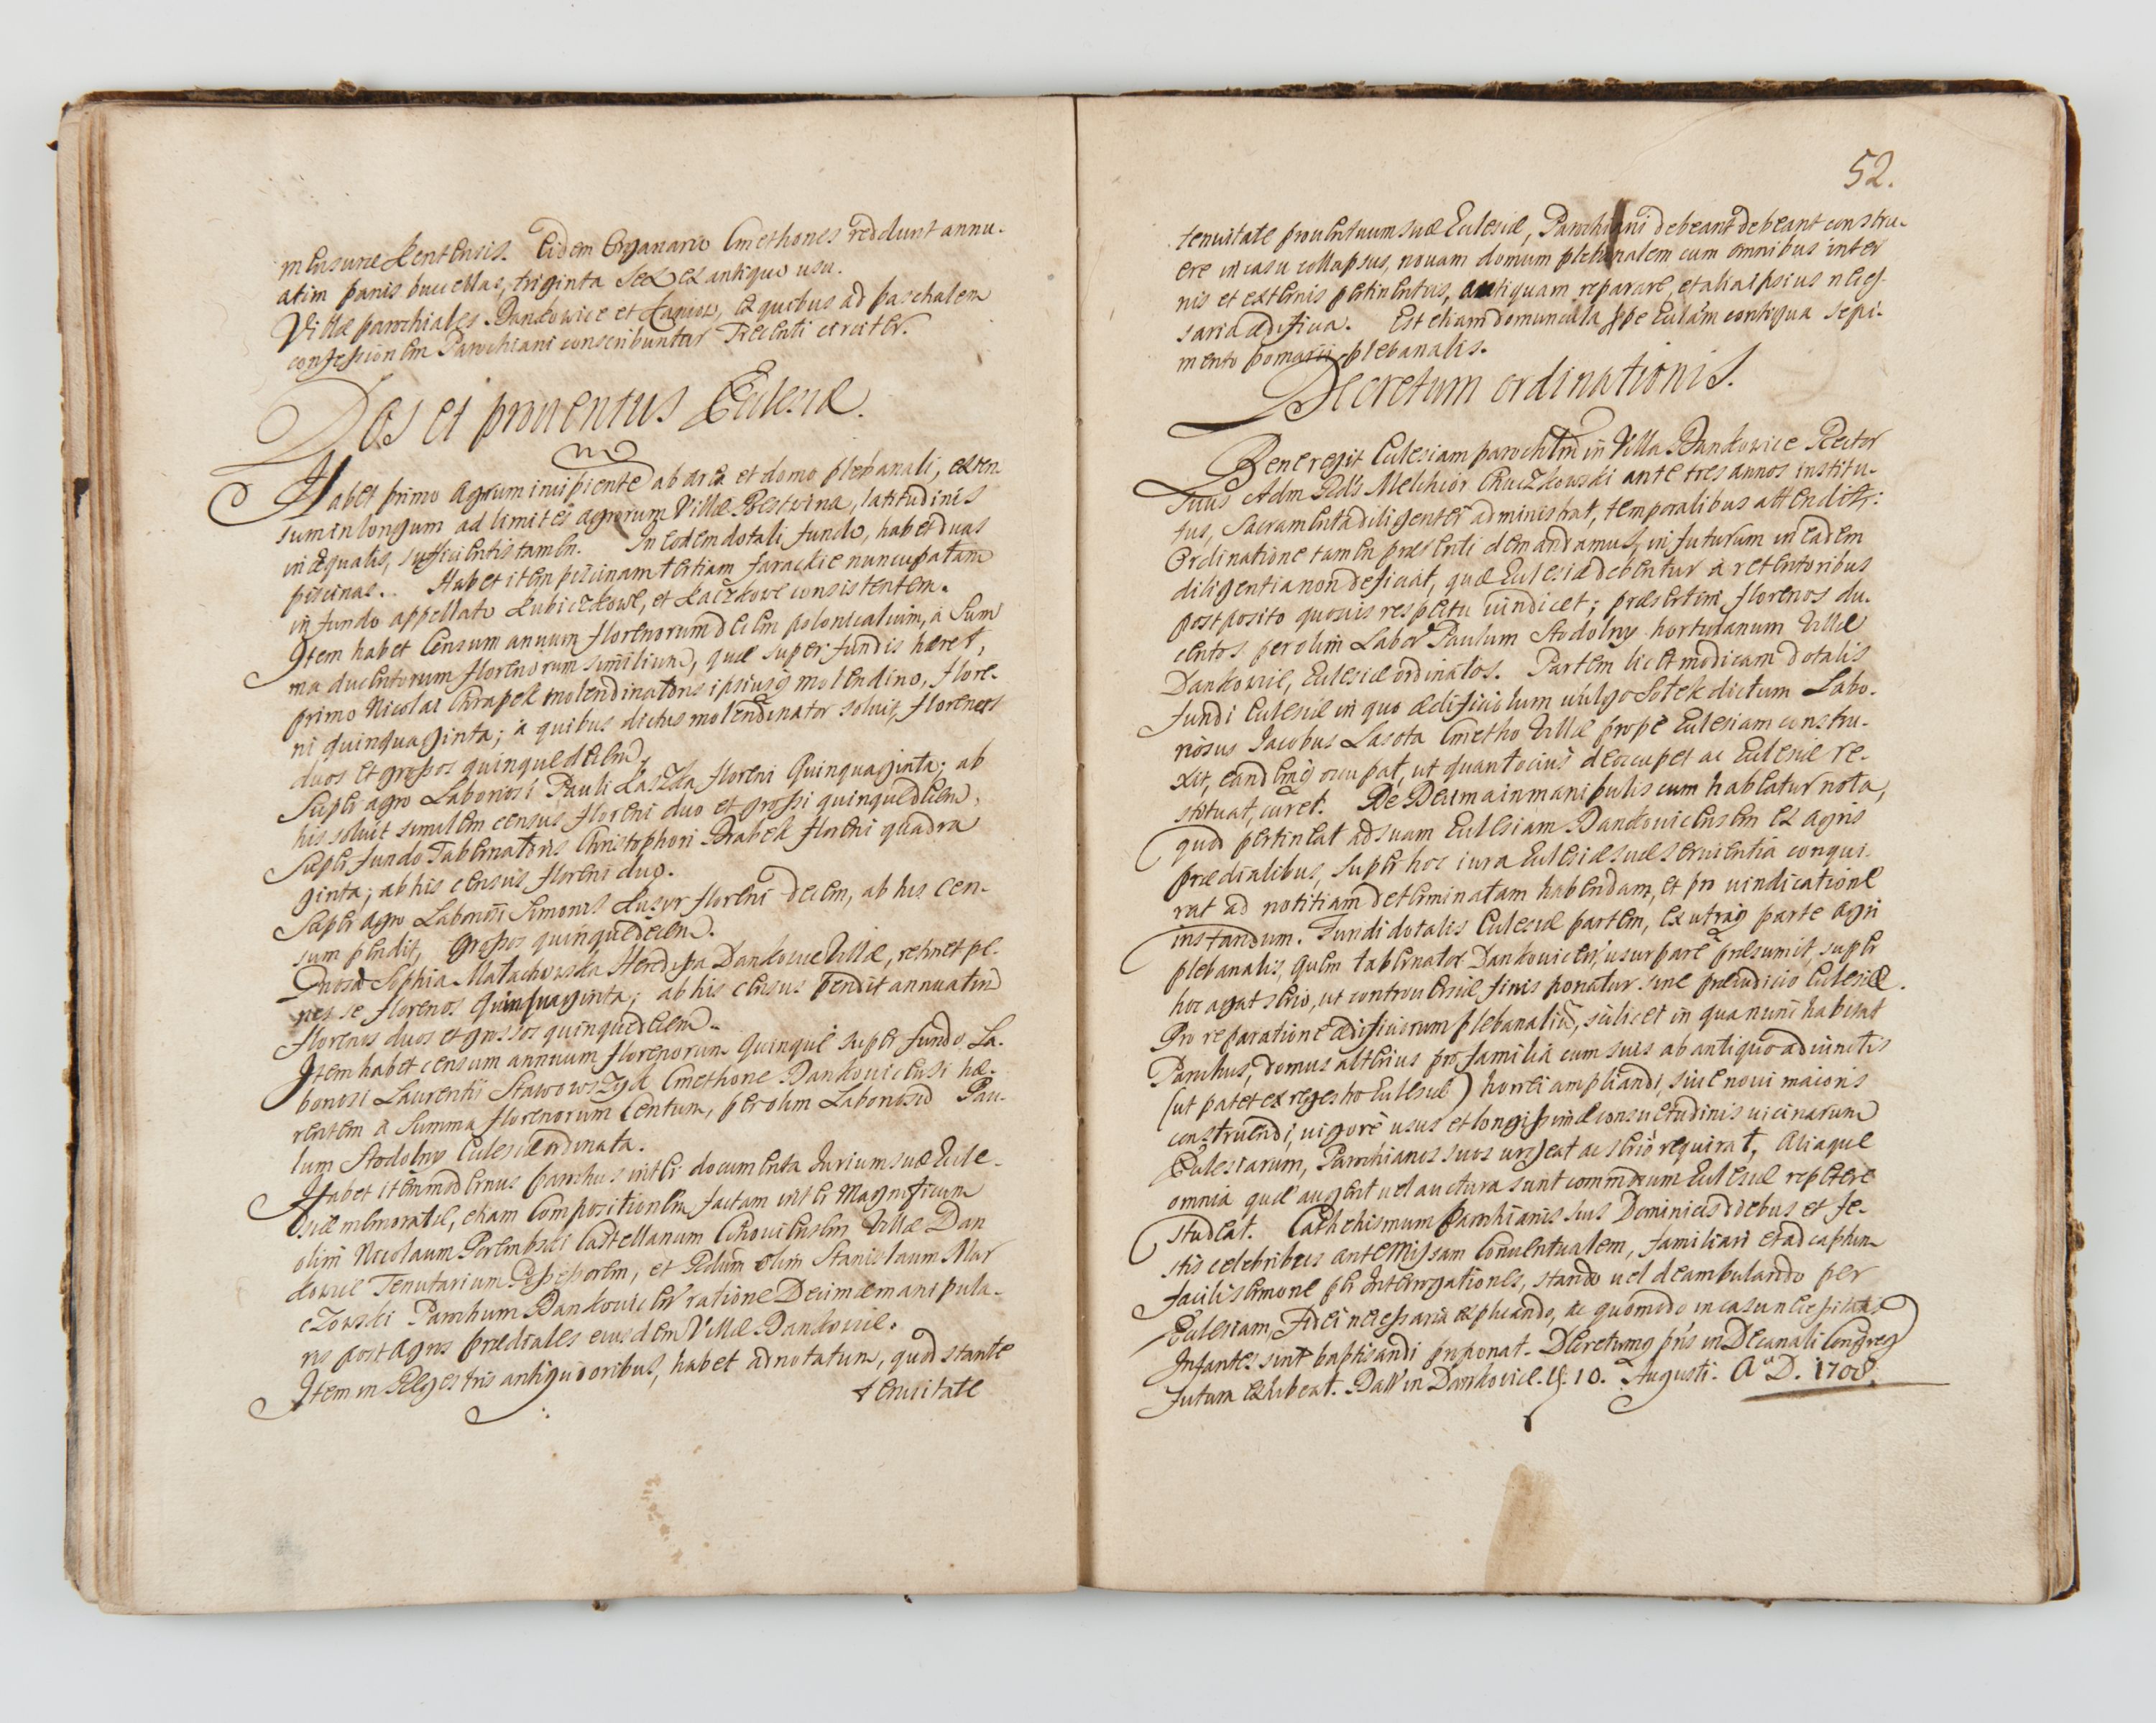 mensuræ Kentensis. Eidem Organario Cmethones reddunt annu-
atim panis buccellas, triginta sex ex antiquo usu.
Villæ parochiales Dankowice et Kaniow, ex quibus ad paschalem
confessionem Parochiani conscribuntur Trecenti circiter.
Dos et prouentus Ecclesiæ.
Habet primo agrum incipientē ab area et domo plebanali, exten-
sum in longum ad limites agrorum Villæ Bestwina, latitudinis
inæqualis, sufficientis tamen. In eodem dotali fundo, habet duas
piscinas. Habet item piscinam tertiam Farackie nuncupatam
in fundo appellato Kubiczkowe, et Kaczkowe consistentem.
Item habet Censum annuum florenorum decem polonicalium, à Sum
ma ducentorum florenorum similium, quæ super fundis hæret,
primo Nicolai Chrapek molendinatoris ipsiusq molendino, flore-
ni quinquaginta; à quibus dictus molendinator soluit florenos
duos et grossos quinquedecem.
Super agro Laboriosi Pauli Laszka floreni Quinquaginta; ab
his soluit similem census floreni duo et grossi quinquedecem.
Super fundo Tabernatoris Christophori Brabek floreni quadra
ginta; ab his census floreni duo.
Super agro Laboriosi Simonis Kusyr floreni decem, ab his cen-
sum pendit, grossos quinquedecem.
Gnosa Sophia Małachowska Heredissa Dankowice Villæ, retinet pe-
nes se florenos quinquaginta; ab his census pendit annuatim
florenos duos et grossos quinquedecem.
Item habet censum annuum florenorum quinque super fundo La-
boriosi Laurentii Stawowszyk Cmethone Dankouicensi hæ-
rentem à Summa florenorum Centum, per olim Laboriosum Pau-
lum Stodolny Ecclesiæ ordinata.
Habet item modernus parochus inter documenta Iurium suæ Eccle-
siæ memoratæ, etiam Compositionem factam inter Magnificum
olim Nicolaum Porembski Castellanum Villæ Dan
kowice Tenutarium Possessorem, et Rdum olim Stanislaum Mar
czowski Parochum Dankouicen ratione Decimæ manipula-
ris post agros prædiales eiusdem Villæ Dankowice.
Item in Regestris antiquioribus, habet adnotatum, quod stante
tenuitate
52.
tenuitate prouentuum suæ Ecclesiæ, Parochiani debeant debeant constru-
ere in casu collapsus, nouam domum plebanalem cum omnibus inter
nis et externis pertinentiis, antiquam reparare, et alia ipsius neces-
saria ædificia. Est etiam domuncula ppe Ecclam contigua sepi-
mento pomarii plebanalis.
Decretum ordinationis.
Bene regit Ecclesiam parochlem in Villa Dankowice Rector
suus Adm Rdus Melchior Chaczkowski ante tres annos institu-
tus, Sacramenta diligenter administrat, temporalibus attendit:
Ordinatione tamen præsenti demandamus, in futurum in eadem
diligentia non deficiat, quæ Ecclesiæ debentur à retentoribus
postposito quouis respectu uindicet; præsertim florenos du-
centos per olim Labor Paulum Stodolny hortulanum Villæ
Dankowice, Ecclesiæ ordinatos. Partem licet modicam dotalis
fundi Ecclesiæ in quo ædificiolum uulgo Sotek dictum Labo-
riosus Iacobus Lasota Cmetho Villæ prope Ecclesiam constru-
xit, eandemq occupat, ut quantocius deoccupet ac Ecclesiæ re-
stituat, curet. De Decima in manipulis cum habeatur nota,
quod pertineat ad suam Ecclesiam Dankouicensem ex agris
prædialibus, super hoc iura Ecclesiæ suæ seruientia conqui-
rat ad notitiam determinatam habendam, et pro uindicatione
instandum. Fundi dotalis Ecclesiæ partem, ex utraq parte agri
plebanalis, quem tabernator Dankouicen usurpare præsumit, super
hoc agat serio, ut controuersiæ finis ponatur sine præiudicio Ecclesiæ.
Pro reparatione ædificiorum plebanaliū, scilicet in qua nunc habitat
Parochus, domus alterius pro familia cum suis ab antiquo adiunctis
(ut patet ex regestro Ecclesiæ) horrei ampliandi, siue noui maioris
construendi, uigore usus et longissimæ consuetudinis uicinarum
Ecclesiarum, Parochianos suos urgeat ac serio requirat, aliaque
omnia quæ augent uel auctura sunt commodum Ecclesiæ repetere
studeat. Cathehismum parochianis suis Dominicis diebus et fe-
stis celebribus ante Missam Conuentualem, familiari et ad captum
facili sermone per Interrogationes, stando uel deambulando per
Ecclesiam, Fidei necessaria explicando, ac quomodo in casu necessitatis
Infantes sint baptisandi proponat. Decretumq prs in Decanali Congreg
futura exhibeat. Datt in Dankowice. 10. Augusti. Ao D. 1708.